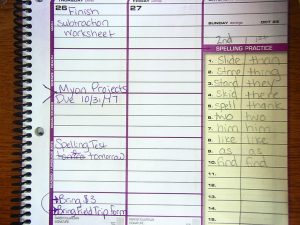 26 Finish
subtraction
worksheet
27
SUNDAY
OCT 28
2nd 1st
SPELLING PRACTICE
1. Slide than
2. Stop thing
3. Stand they
4. Skid there
5. spell thank
6. two two
7. him him
8. like like
9. as as
10. find find
11.
12.
13.
14.
15.
Projects
Due 10/31/47
Spelling Test
tomorrow
Bring $3
Bring Field Trip form